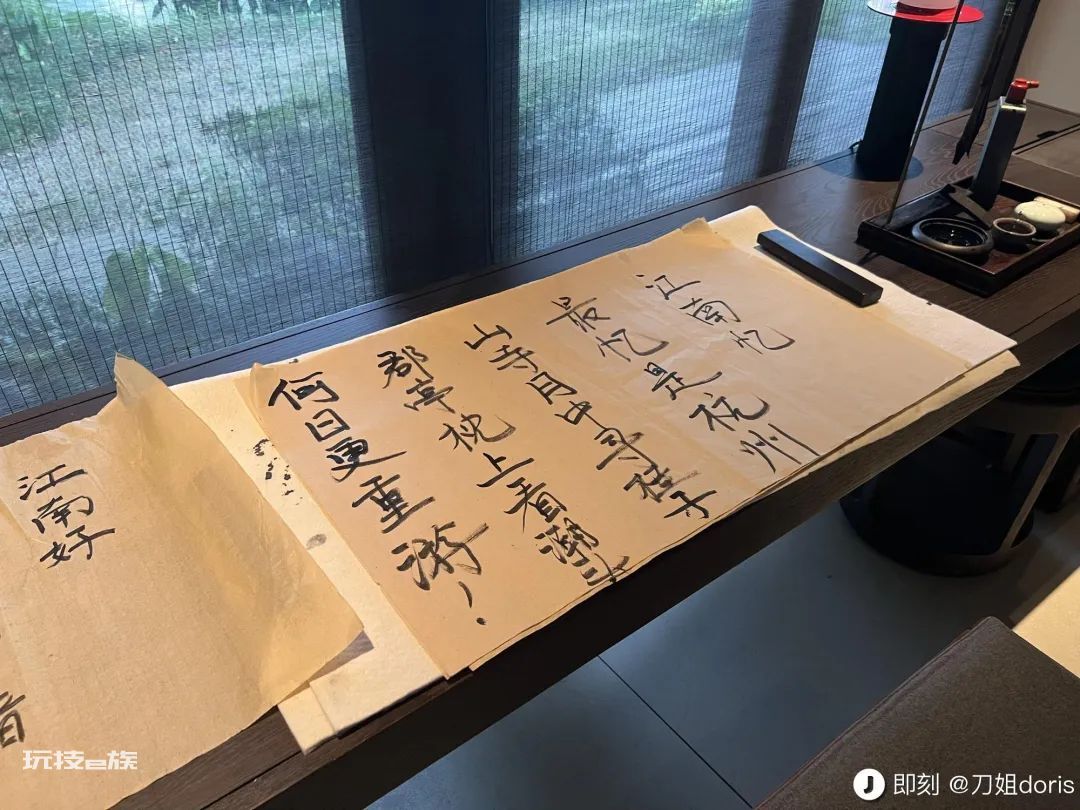 江南忆
最忆是杭州
山寺月中寻桂子
郡亭枕上看潮头
何日更重游!
江南好
玩技e族
即刻 @刀姐doris